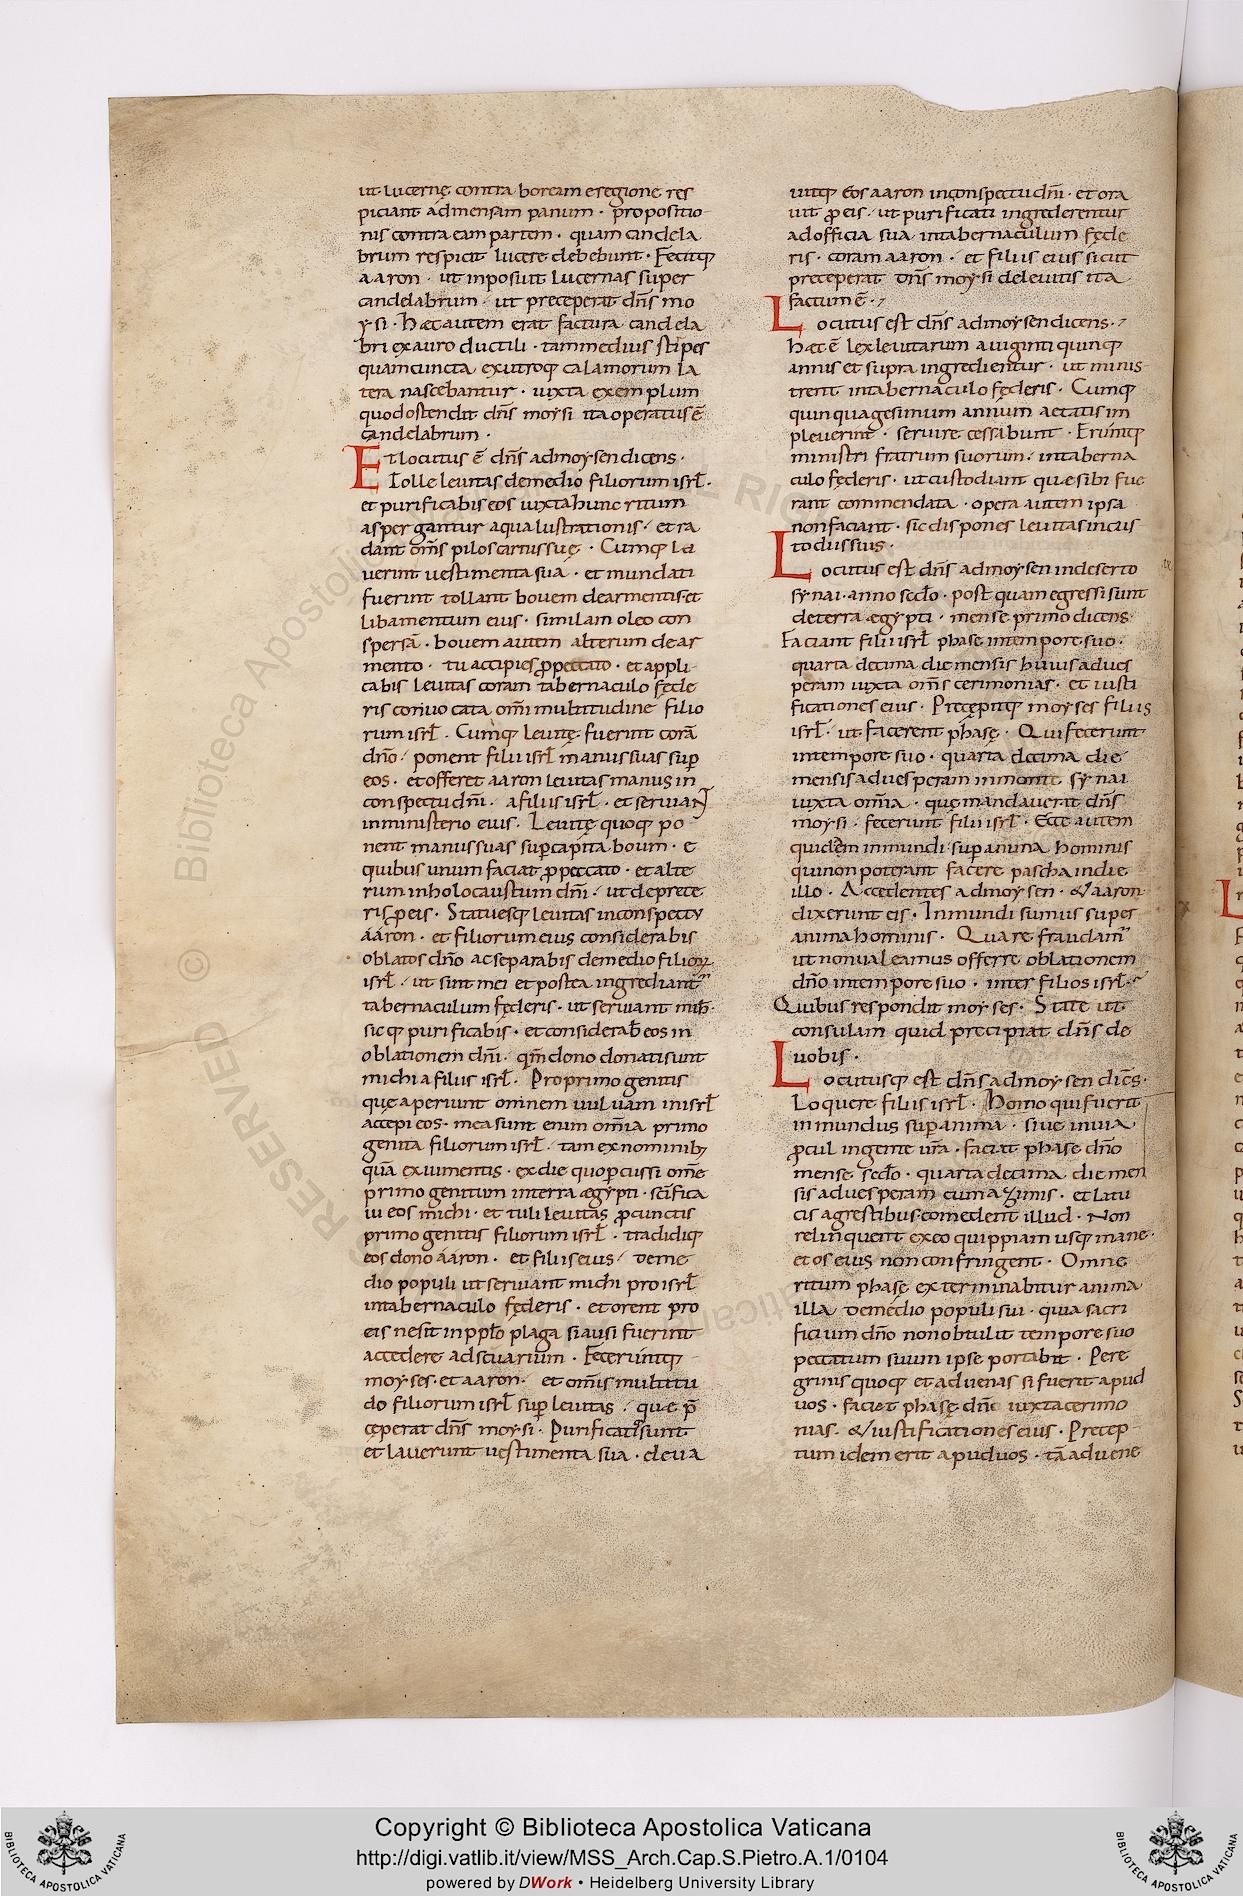 ut lucernę contra boream e regione res
piciant ad mensam panum · propositio
nis contra eam partem · quam candela
brum respicit lucere debebunt · Fecitq;
aaron · ut inposuit lucernas super
candelabrum · ut preceperat dñs mo
ysi · Hæc autem erat factura candela
bri ex auro ductili · tam medius stipes
quam cuncta ex utroq; calamorum la
tera nascebantur · iuxta exemplum
quod ostendit dñs moysi ita operatus ē
candelabrum ·
Et locutus ē dñs ad moysen dicens ·
Tolle leuitas de medio filiorum isrł ·
et purificabis eos iuxta hunc ritum
aspergantur aqua lustrationis · et ra
dant om̄s pilos carnis suę · Cumq; la
uerint uestimenta sua · et mundati
fuerint tollant bouem de armentis et
libamentum eius · similam oleo con
spersā · bouem autem alterum de ar
mento · tu accipies ꝓ peccato · et appli
cabis leuitas coram tabernaculo fęde
ris conuocata om̄i multitudine filio
rum isrł · Cumq; leuitę fuerint corā
dño · ponent filii isrł manus suas suꝑ
eos · et offeret aaron leuitas manus in
conspectu dñi · a filiis isrł · et seruiant
in ministerio eius · Leuitę quoq; po
nent manus suas suꝑ capita boum · e
quibus unum faciat ꝓ peccato · et alte
rum in holocaustum dñi · ut deprece
ris ꝓ eis · Statuesq; leuitas in conspectu
aaron · et filiorum eius considerabis
oblatos dño ac separabis de medio filioꝝ
isrł · ut sint mei et postea ingrediant᷑
tabernaculum fęderis · ut seruiant mihi ·
sicq; purificabis · et considerab̄ eos in
oblationem dñi · qm̄ dono donati sunt
michi a filiis isrł · Pro primogenitis
quę aperiunt omnem uuluam in isrł
accepi eos · mea sunt enim om̄ia primo
genita filiorum isrł · tam ex nominib;
quā ex iumentis · ex die quo ꝑcussi om̄e
primogenitum in terra ægypti · sc̄ifica
ui eos michi · et tuli leuitas ꝓ cunctis
primogenitis filiorum isrł · tradidiq;
eos dono aaron · et filiis eius / de me
dio populi ut seruiant michi pro isrł
in tabernaculo fęderis · et orent pro
eis ne sit in ppło plaga si ausi fuerint
accedere ad scuarium · Feceruntq;
moyses · et aaron · et om̄is multitu
do filiorum isrł suꝑ leuitas · que p̄
ceperat dñs moysi · Purificati sunt
et lauerunt uestimenta sua · eleua
uitq; eos aaron in conspectu dñi · et ora
uit ꝓ eis · ut purificati ingrederentur
ad officia sua in tabernaculum fęde
ris · coram aaron · et filiis eius sicut
preceperat dñs moysi de leuitis ita
factum ē ·
Locutus est dñs ad moysen dicens ·
hæc ē lex leuitarum a uiginti quinq;
annis et supra ingredientur · ut minis
trent in tabernaculo fęderis · Cumq;
quinquagesimum annum aetatis im
pleuerint · seruire cessabunt · Eruntq;
ministri fratrum suorum · in taberna
culo fęderis · ut custodiant quę sibi fue
rant commendata · opera autem ipsa
non faciant · sic dispones leuitas in cus
todiis suis ·
Locutus est dñs ad moysen in deserto
synai · anno scd̄o · postquam egressi sunt
de terra ægypti · mense primo dicens ·
Faciant filii isrł phase in tempore suo ·
quarta decima die mensis huius ad ues
peram iuxta om̄s cerimonias · et iusti
ficationes eius · Precepitq; moyses filiis
isrł · ut facerent phasę · Qui fecerunt
in tempore suo · quarta decima die
mensis ad uesperam in monte synai
iuxta om̄ia · quę mandauerat dñs
moysi · fecerunt filii isrł · Ecce autem
quidem inmundi suꝑ anima hominis
qui non poterant facere pascha in die
illo · Accedentes ad moysen · & aaron
dixerunt eis · Inmundi sumus super
anima hominis · Quare fraudam᷑
ut non ualeamus offerre oblationem
dño in tempore suo · inter filios isrł ·
Quibus respondit moyses · State ut
consulam quid precipiat dñs de
uobis ·
Locutusq; est dñs ad moysen dic̄s ·
Loquere filiis isrł · Homo qui fuerit
inmundus suꝑ anima · siue in uia
ꝓcul in gente ur̄a · faciat phase dño
mense scd̄o · quarta decima die men
sis ad uesperam cum azimis · et latu
cis agrestibus comedent illud · Non
relinquent ex eo quippiam usq; mane ·
et os eius non confringent · Omne
ritum phasę exterminabitur anima
illa de medio populi sui · quia sacri
ficium dño non obtulit tempore suo
peccatum suum ipse portabit · Pere
grinis quoq; et aduenas si fuerit apud
uos · faciet phasę dño iuxta cerimo
nias · & iustificationes eius · Precep
tum idem erit apud uos · tā aduene
Copyright © Biblioteca Apostolica Vaticana
http://digi.vatlib.it/view/MSS_Arch.Cap.S.Pietro.A.1/0104
powered by DWork • Heidelberg University Library